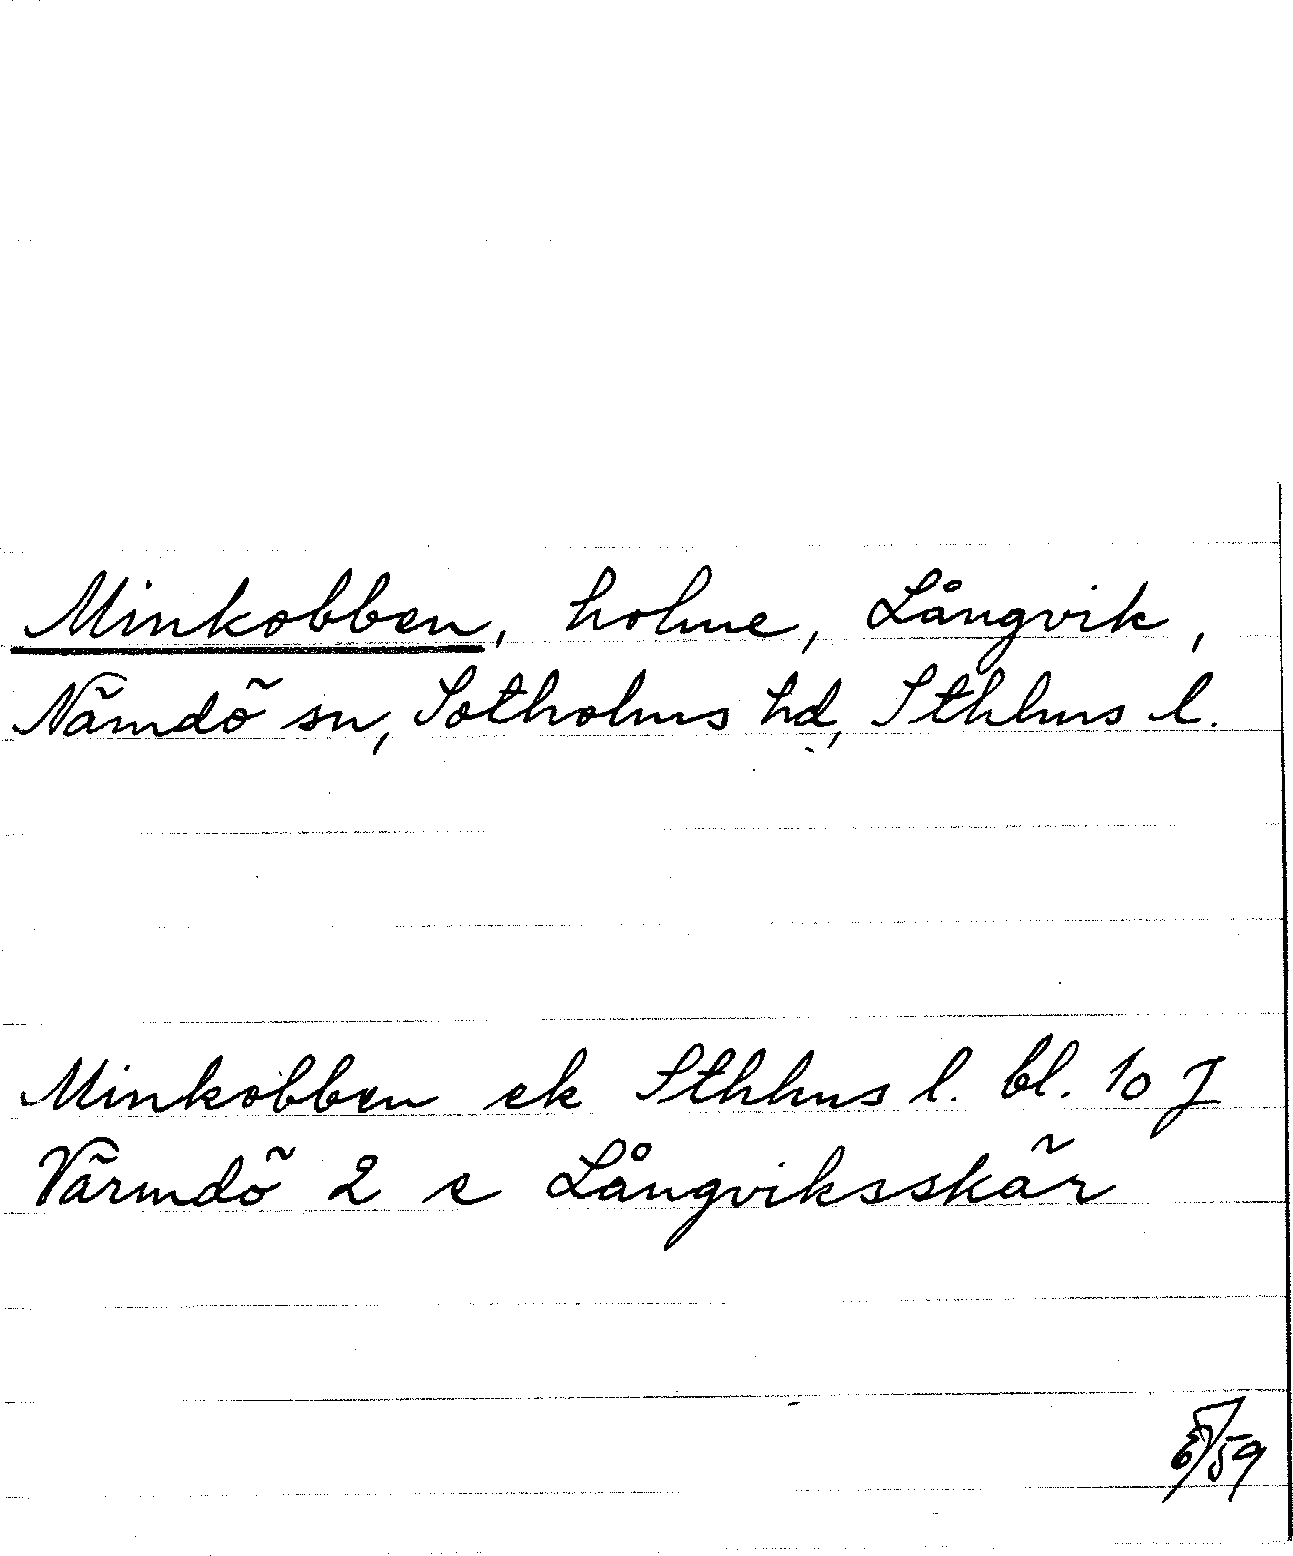 Minkobben, holme, Långvik,
Nämdö sn, Sotholms hd, Sthlms l.
Minkobben ek Sthlms l. bl. 10 J
Värmdö 2 c Långviksskär
/59